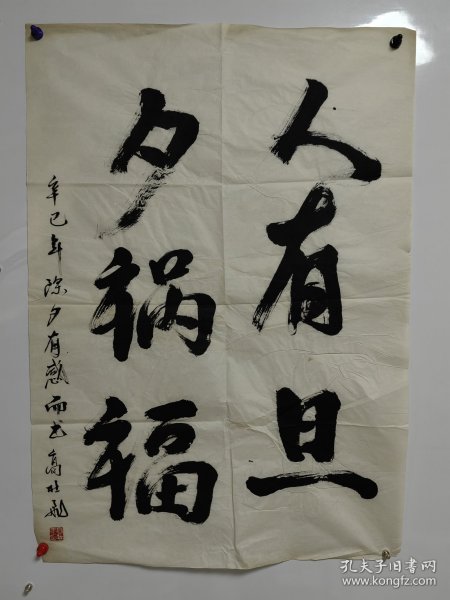 人有旦
夕禍福
辛巳年除夕有感而书
孔夫子旧书网
www.kongfz.com